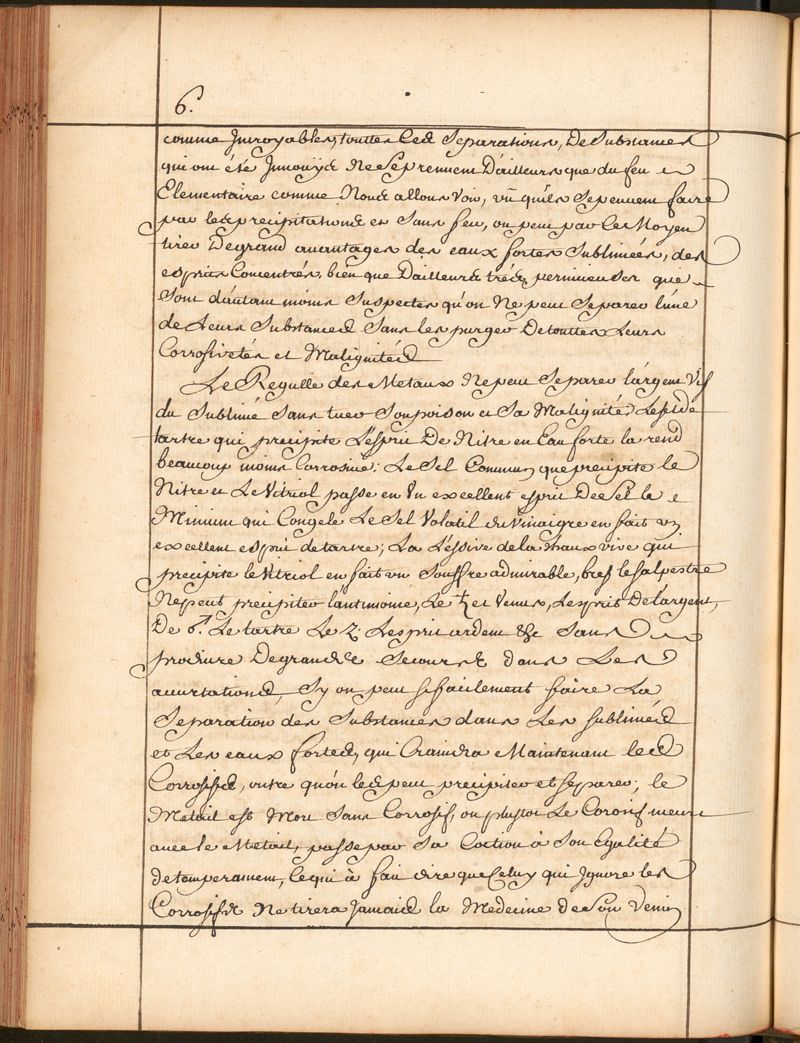 6.
comme Jncroyables, touttes Ces Separations, De Substances
qui ont été Jnouÿes ne Se prennent D'ailleurs que du feu
Elementaire comme Nous allons Voir, vû qu'ils Se peuvent faire
par les precipitations et Sans feu, on peut par Ce Moyen
tirer De grand auantages des eaux fortes Sublimées, des
esprits Concentrés, bien que D'ailleurs trés pernicieuses que
Sont d'autant moins Suspectes qu'on Ne peut Separer l'une
de Leurs Substances Sans les purger De touttes Leurs
Corrosivetés et Malignités
Le Regulle des Metaux Ne peut Separer l'argent Vif
du Sublimé Sans tuer Son poison et Sa Malignité, Le Sel de
tartre qui precipite L'esprit De Nitre en Eau forte la rend
beaucoup moins Corrosive; Le Sel Commun que precipite le
Nitre et Le Vitriol passe en Vn excellent esprit De Sel le
Minium qui Congele Le Sel Volatil du Vinaigre en fait vn
excellent esprit de tartre; La Léssive de la chaux vive qui
precipite le Vitriol en fait vn Souffre admirable, bref le Salpestre
Ne peut precipiter l'antimoine, Le ♄ et Venus, L'esprit De l'argent,
De Le tartre Le L'esprit ardent &c Sans
produire De grands Secours dans Les
acurtations, Sy on peut si facilement faire La
Separation des Substances dans Les Sublimés
et Les eaux fortes, qui Craindra Maintenant les
Corrosifs, outre qu'on les peut precipiter et Separer; le
Metail est Mort Sans Corrosif, ou plustot Le Corosif meurt
auec le Metail, passe par Sa Coction à Son Egalité
de temperament, Ce qui à fait dire que Celuy qui Jgnore les
Corrosifs Ne tirera Jamais la Medecine de Son Venin